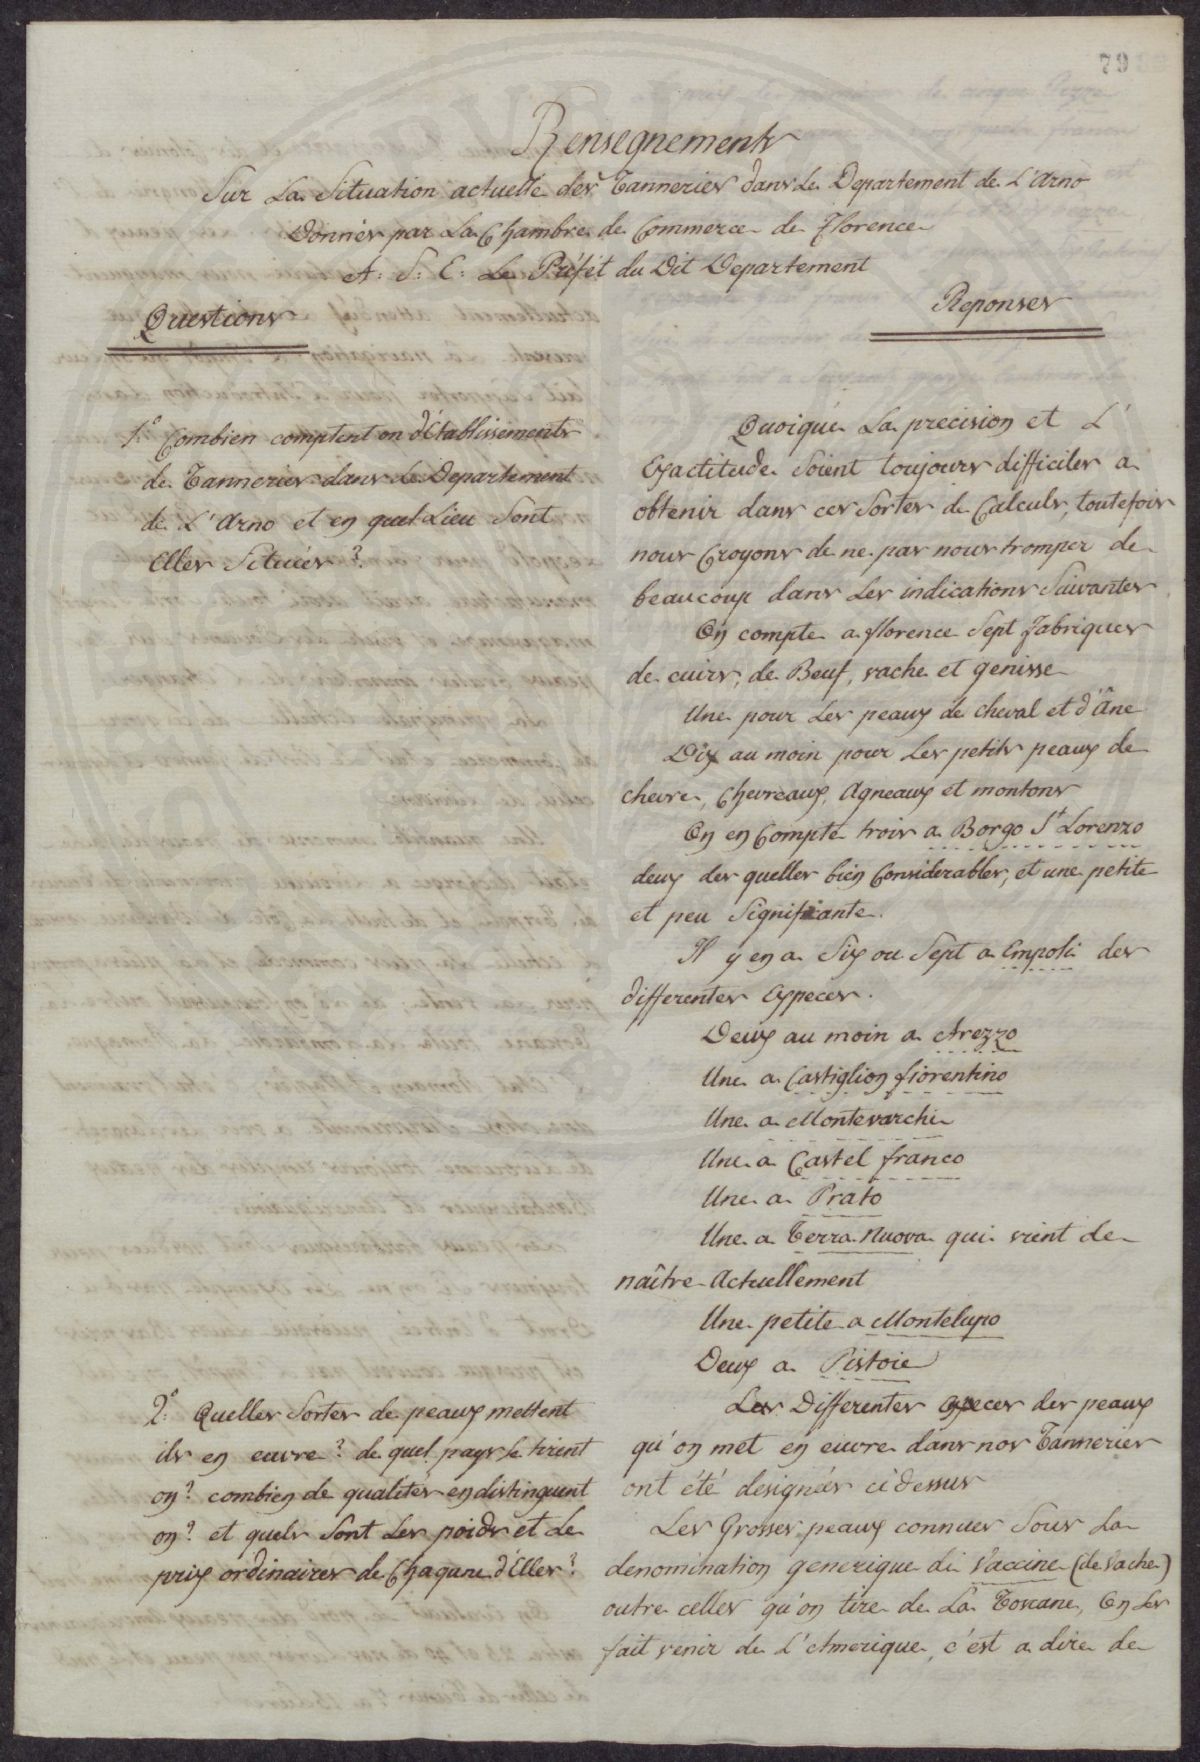 79
Rensegnements
Sur La Situation actuelle des Tanneries dans Le Departement de L'Arno
Donnés par La Chambre de Commerce de Florence
A. S. E. Le Préfét du Dit Departement
Questions
Reponses
1.° Combien comptent on d'Etablissements
de Tanneries dans Le Departement
de L'Arno et en quel Lieu Sont
Elles Situées?
Quoique La precision et L'
Exactitude Soient toujours difficiles a
obtenir dans ces Sortes de Calculs, toutefois
nous Croyons de ne pas nous tromper de
beaucoup dans Les indications Suivantes
On compte a florence Sept fabriques
de cuirs, de Beuf, vache et genisse
Une pour Les peaux de cheval et d'Âne
Dix au moin pour Les petits peaux de
chevre, Chevreaux, Agneaux et montons
On en Compte trois a Borgo St Lorenzo
deux des quelles bien Considerables, et une petite
et peu Significante.
Il y en a Six ou Sept a Empoli des
differentes Especes.
Deux au moin a Arezzo
Une a Castiglion fiorentino
Une a Montevarchi
Une a Castel franco
Une a Prato
Une a Terra Nuova qui vient de
naître Actuellement
Une petite a Montelupo
Deux a Pistoie
2.° Quelles Sortes de peaux mettent
ils en euvre? de quel pays Le tirent
on? combien de qualités en distinguent
on? et quels Sont Les poids et Le
prix ordinaires de Chaqune d'Elles?
Les Differentes especes des peaux
qu'on met en euvre dans nos Tanneries
ont été designés cidessus
Les Grosses peaux connues Sous La
denomination generique di Vaccine (de Vache)
outre celles qu'on tire de La Toscane, On Les
fait venir de L'Amerique, c'est a dire de